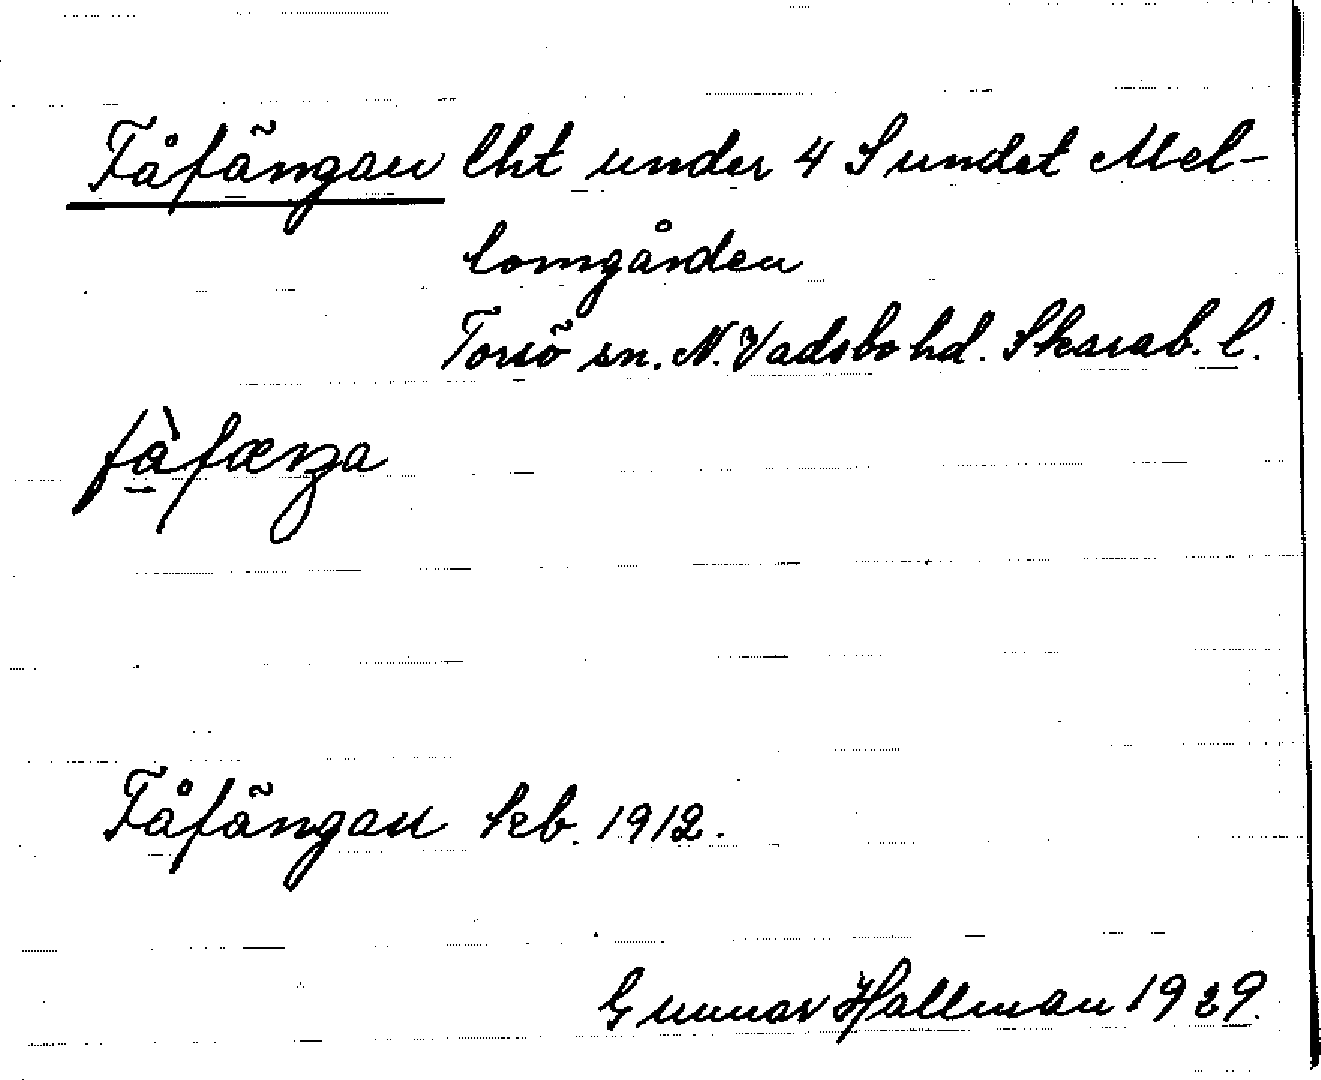 Fåfängan lht under 4 Sundet Mel-
lomgården
Torsö sn. N. Vadsbo hd. Skarab. l.
fàfæŋa
Fåfängan kb. 1912.
Gunnar Hallman 1929.